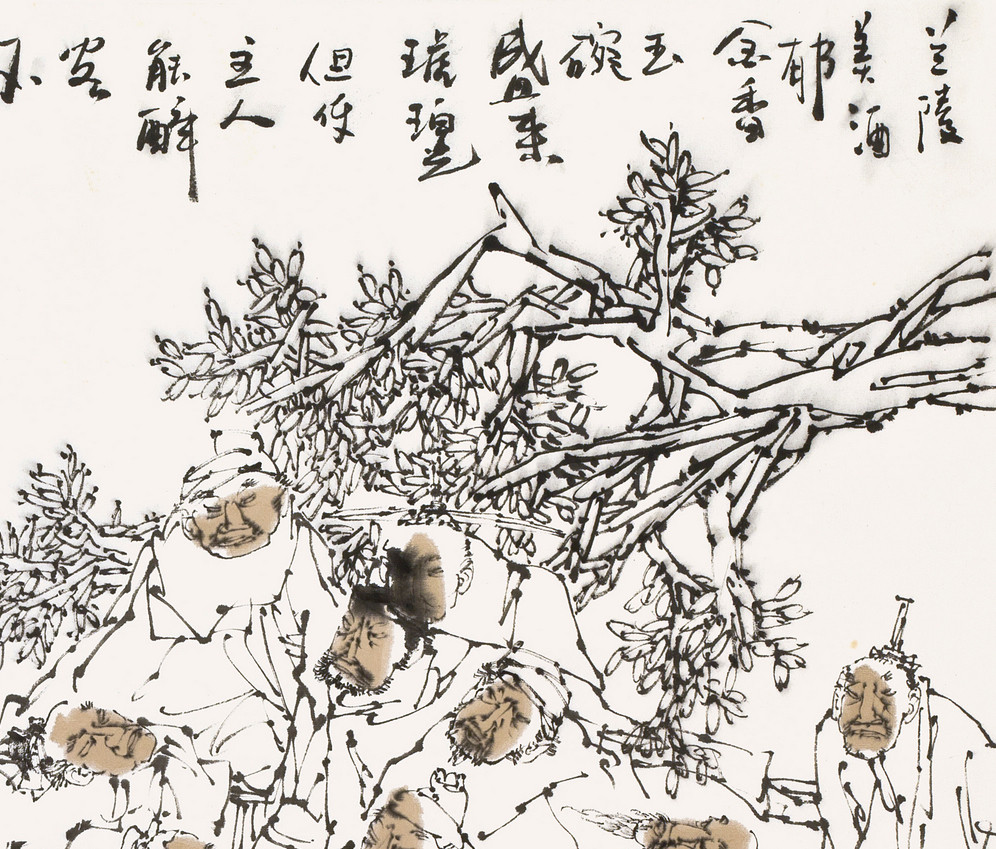 兰陵
美酒
郁
金香
玉
碗
盛来
琥珀光
但使
主人
能醉
客
不